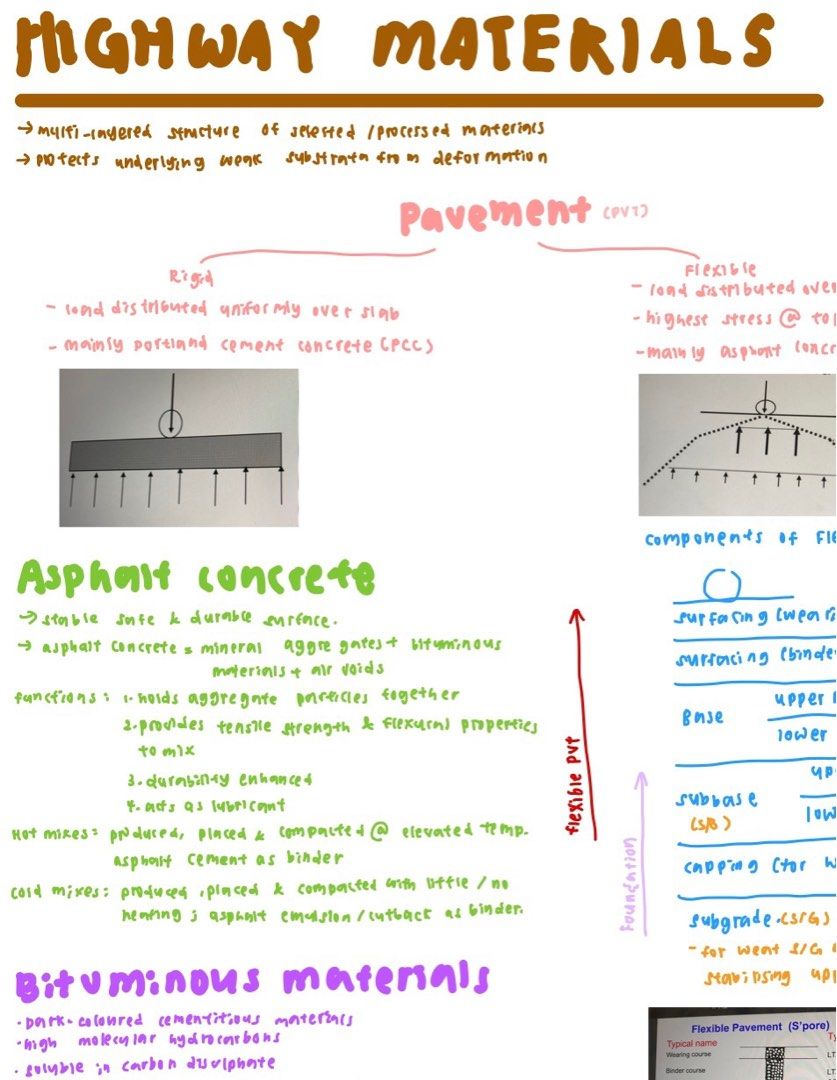 HIGHWAY MATERIALS
→ multi-layered structure of selected/processed materials
→ protects underlying weak substrata from deformation
Pavement (PVT)
Rigid
- load distributed uniformly over slab
- mainly portland cement concrete (PCC)
Flexible
- load distributed over
- highest stress @ to
- mainly asphalt concr
components of Fle
Asphalt concrete
→ stable safe & durable surface.
→ asphalt concrete = mineral aggregates + bituminous
materials + air voids
functions: 1. holds aggregate particles together
2. provides tensile strength & flexural properties
to mix
3. durability enhanced
4. acts as lubricant
Hot mixes: produced, placed & compacted @ elevated temp.
asphalt cement as binder
Cold mixes: produced, placed & compacted with little / no
heating; asphalt emulsion/cutback as binder.
flexible pvt
Foundation
surfacing (weari
surfacing (binde
Base
upper
lower
subbase
(S/B)
up
low
capping (for w
subgrade. (S/G)
- for weat S/G
stabilising up
Bituminous materials
· Dark-coloured cementitious materials
· high molecular hydrocarbons
· soluble in carbon disulphate
Flexible Pavement (S'pore)
Typical name
Ty
Wearing course
LT
Binder course
LT